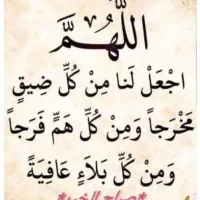 اللَّهُمَّ
اجْعَلْ لَنا مِنْ كُلِّ ضِيقٍ
مَخْرَجاً وَمِنْ كُلِّ هَمٍّ فَرَجاً
وَمِنْ كُلِّ بَلاءٍ عَافِيَةً
*صباح الخير*